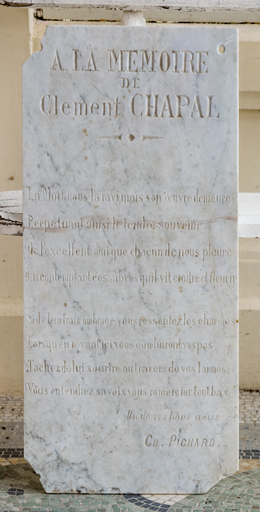 A LA MÉMOIRE
DE
Clément CHAPAL
La Mort nous l'a ravi mais son œuvre demeure
Perpétuant ainsi le tendre souvenir
De l'excellent ami que chacun de nous pleure
En contemplant ces arbres qu'il vit croître et fleurir
Si de leurs frais ombrages vous ressentez les charmes
Lorsqu'en rêvant ici vous conduiront vos pas
Tâchez de lui sourire au travers de vos larmes
Vous entendrez sa voix vous remercier tout bas
Un de ses bons amis
CH. PICHARD.